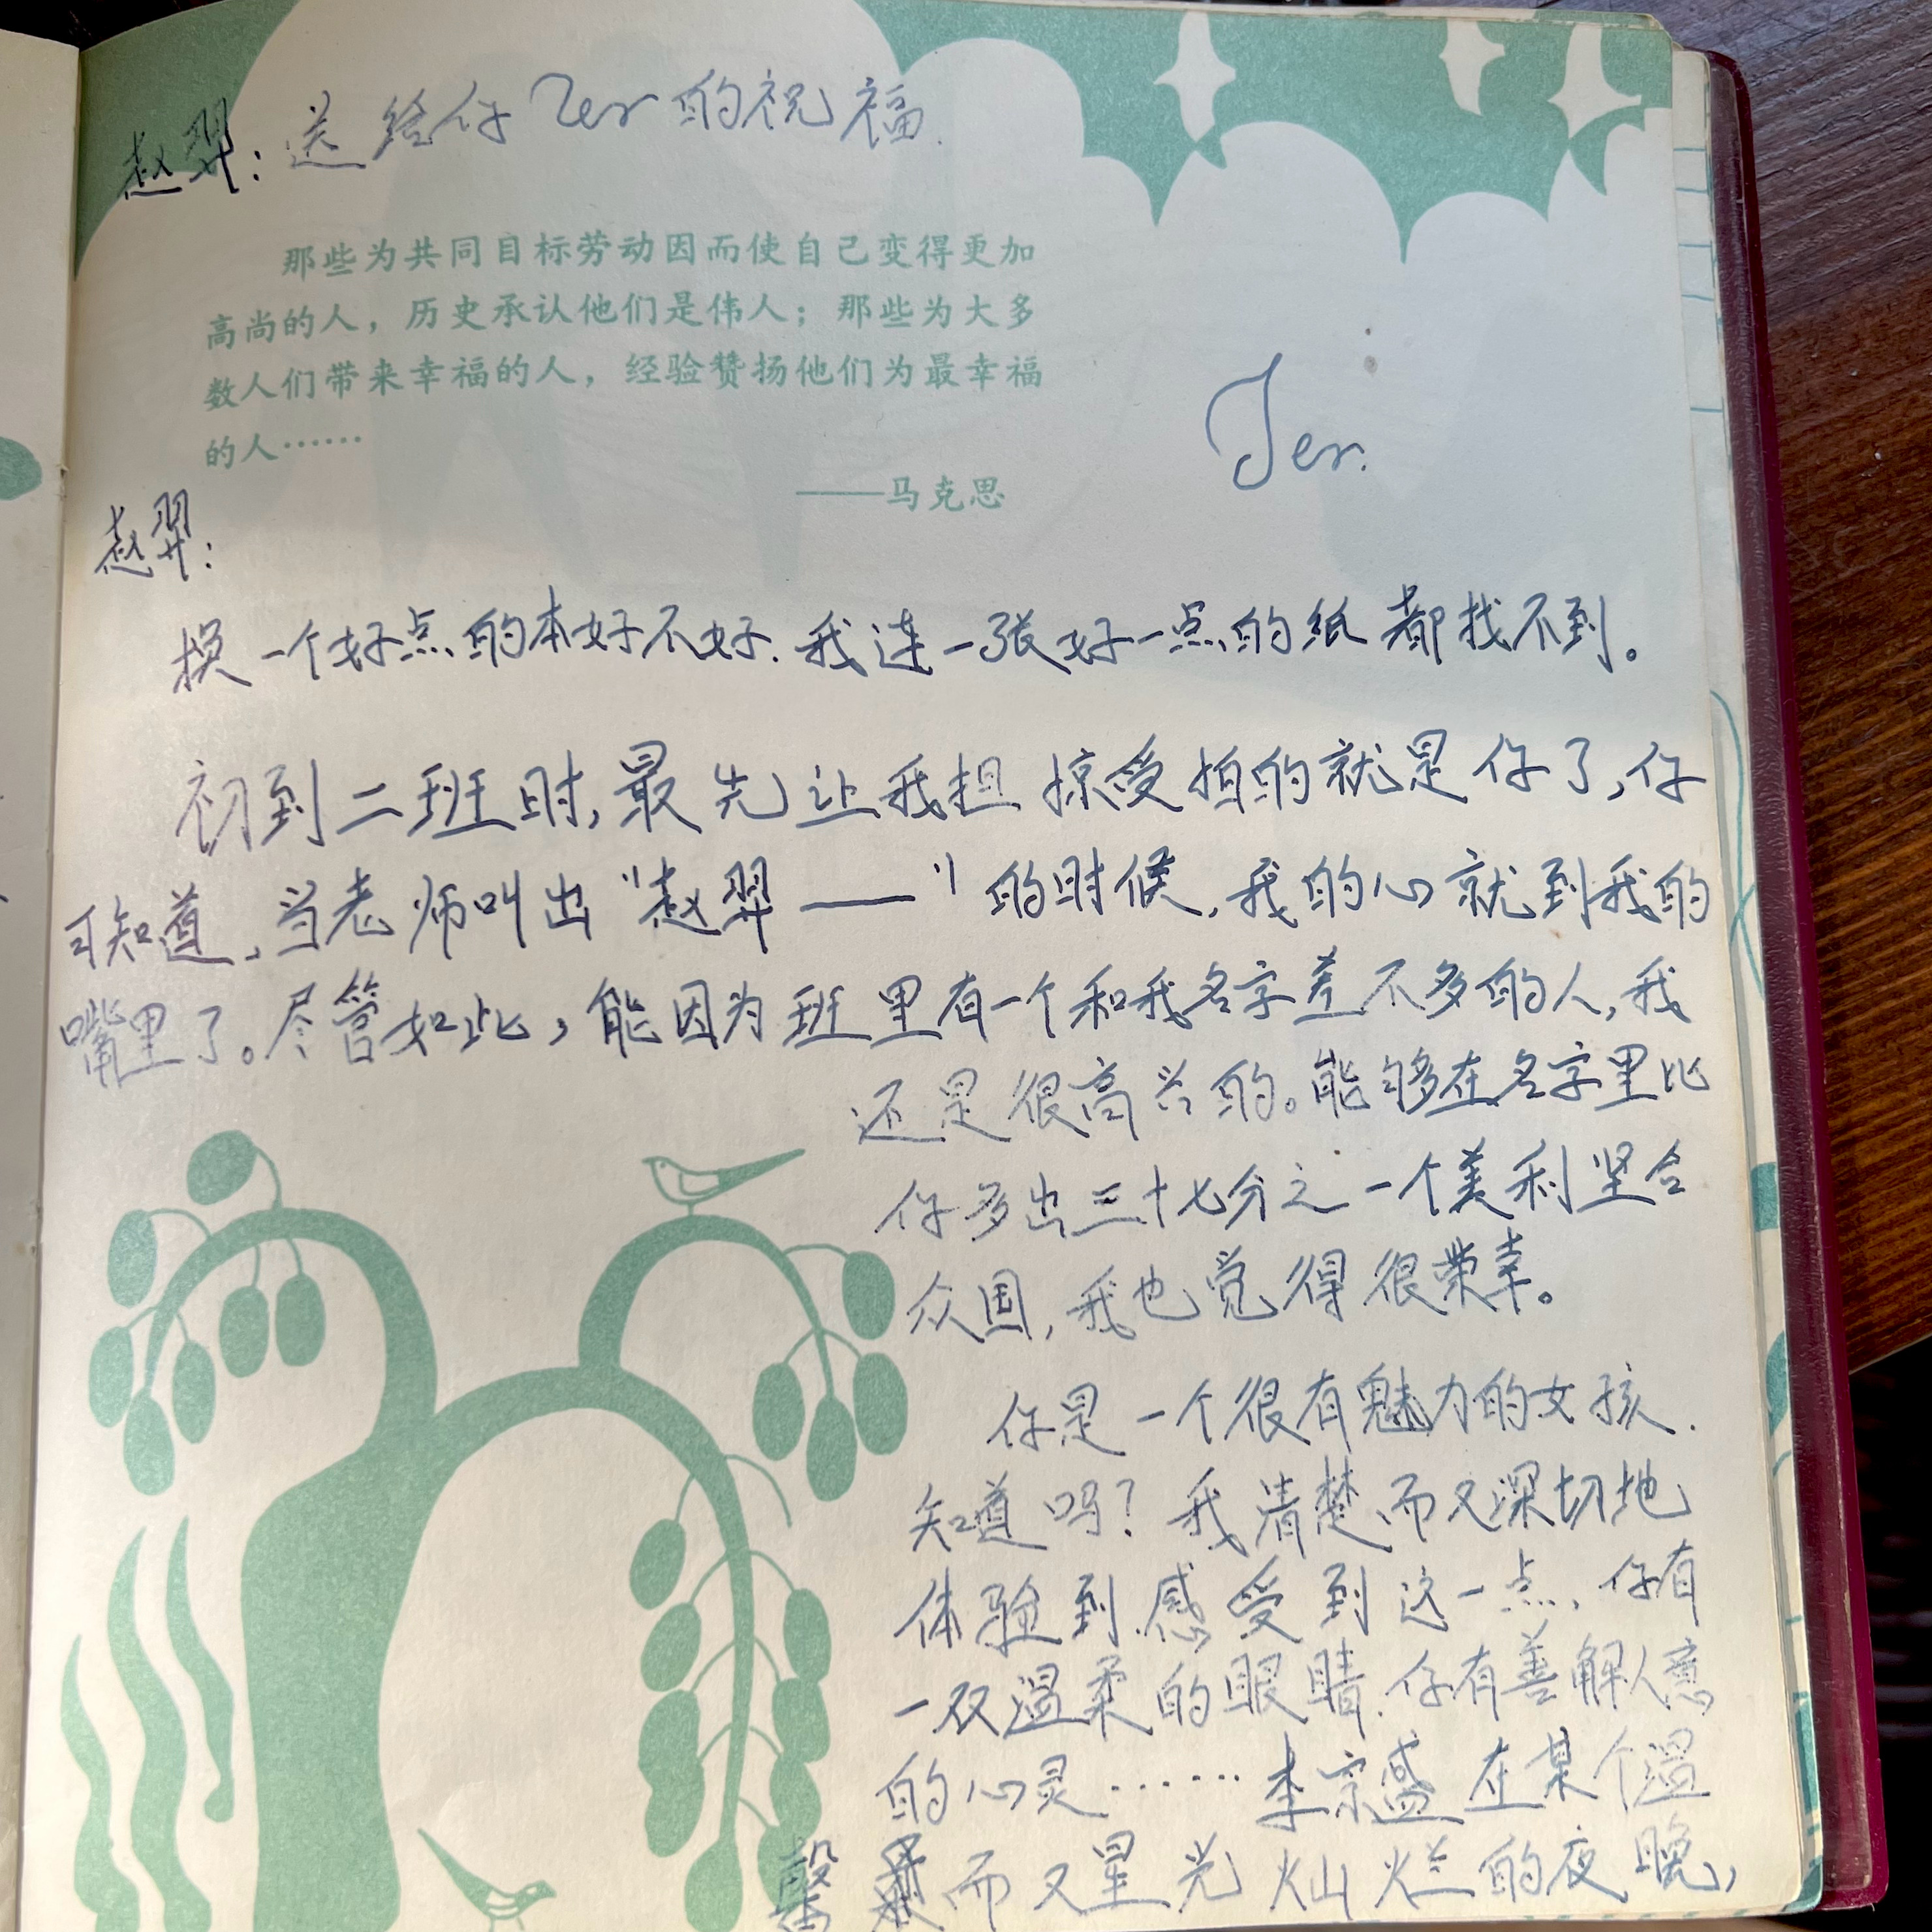 赵羿：送给你 Jer 的祝福.
那些为共同目标劳动因而使自己变得更加
高尚的人，历史承认他们是伟人；那些为大多
数人们带来幸福的人，经验赞扬他们为最幸福
的人……
——马克思
Jer.
赵羿：
换一个好点的本好不好. 我连一张好一点的纸都找不到。
初到二班时，最先让我担惊受怕的就是你了，你
可知道，当老师叫出“赵羿——”的时候，我的心就到我的
嘴里了。尽管如此，能因为班里有一个和我名字差不多的人，我
还是很高兴的。能够在名字里比
你多出三十七分之一个美利坚合
众国，我也觉得很荣幸。
你是一个很有魅力的女孩.
知道吗？我清楚而又深切地
体验到.感受到这一点，你有
一双温柔的眼睛.你有善解人意
的心灵……李宗盛在某个温
馨而又星光灿烂的夜晚，